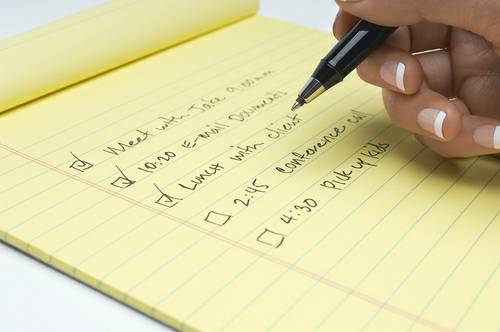 ☑ Meet with Jake 9:00am
☑ 10:20 E-mail Documents
☑ Lunch with client
☐ 2:45 Conference call
☐ 4:30 Pick up kids